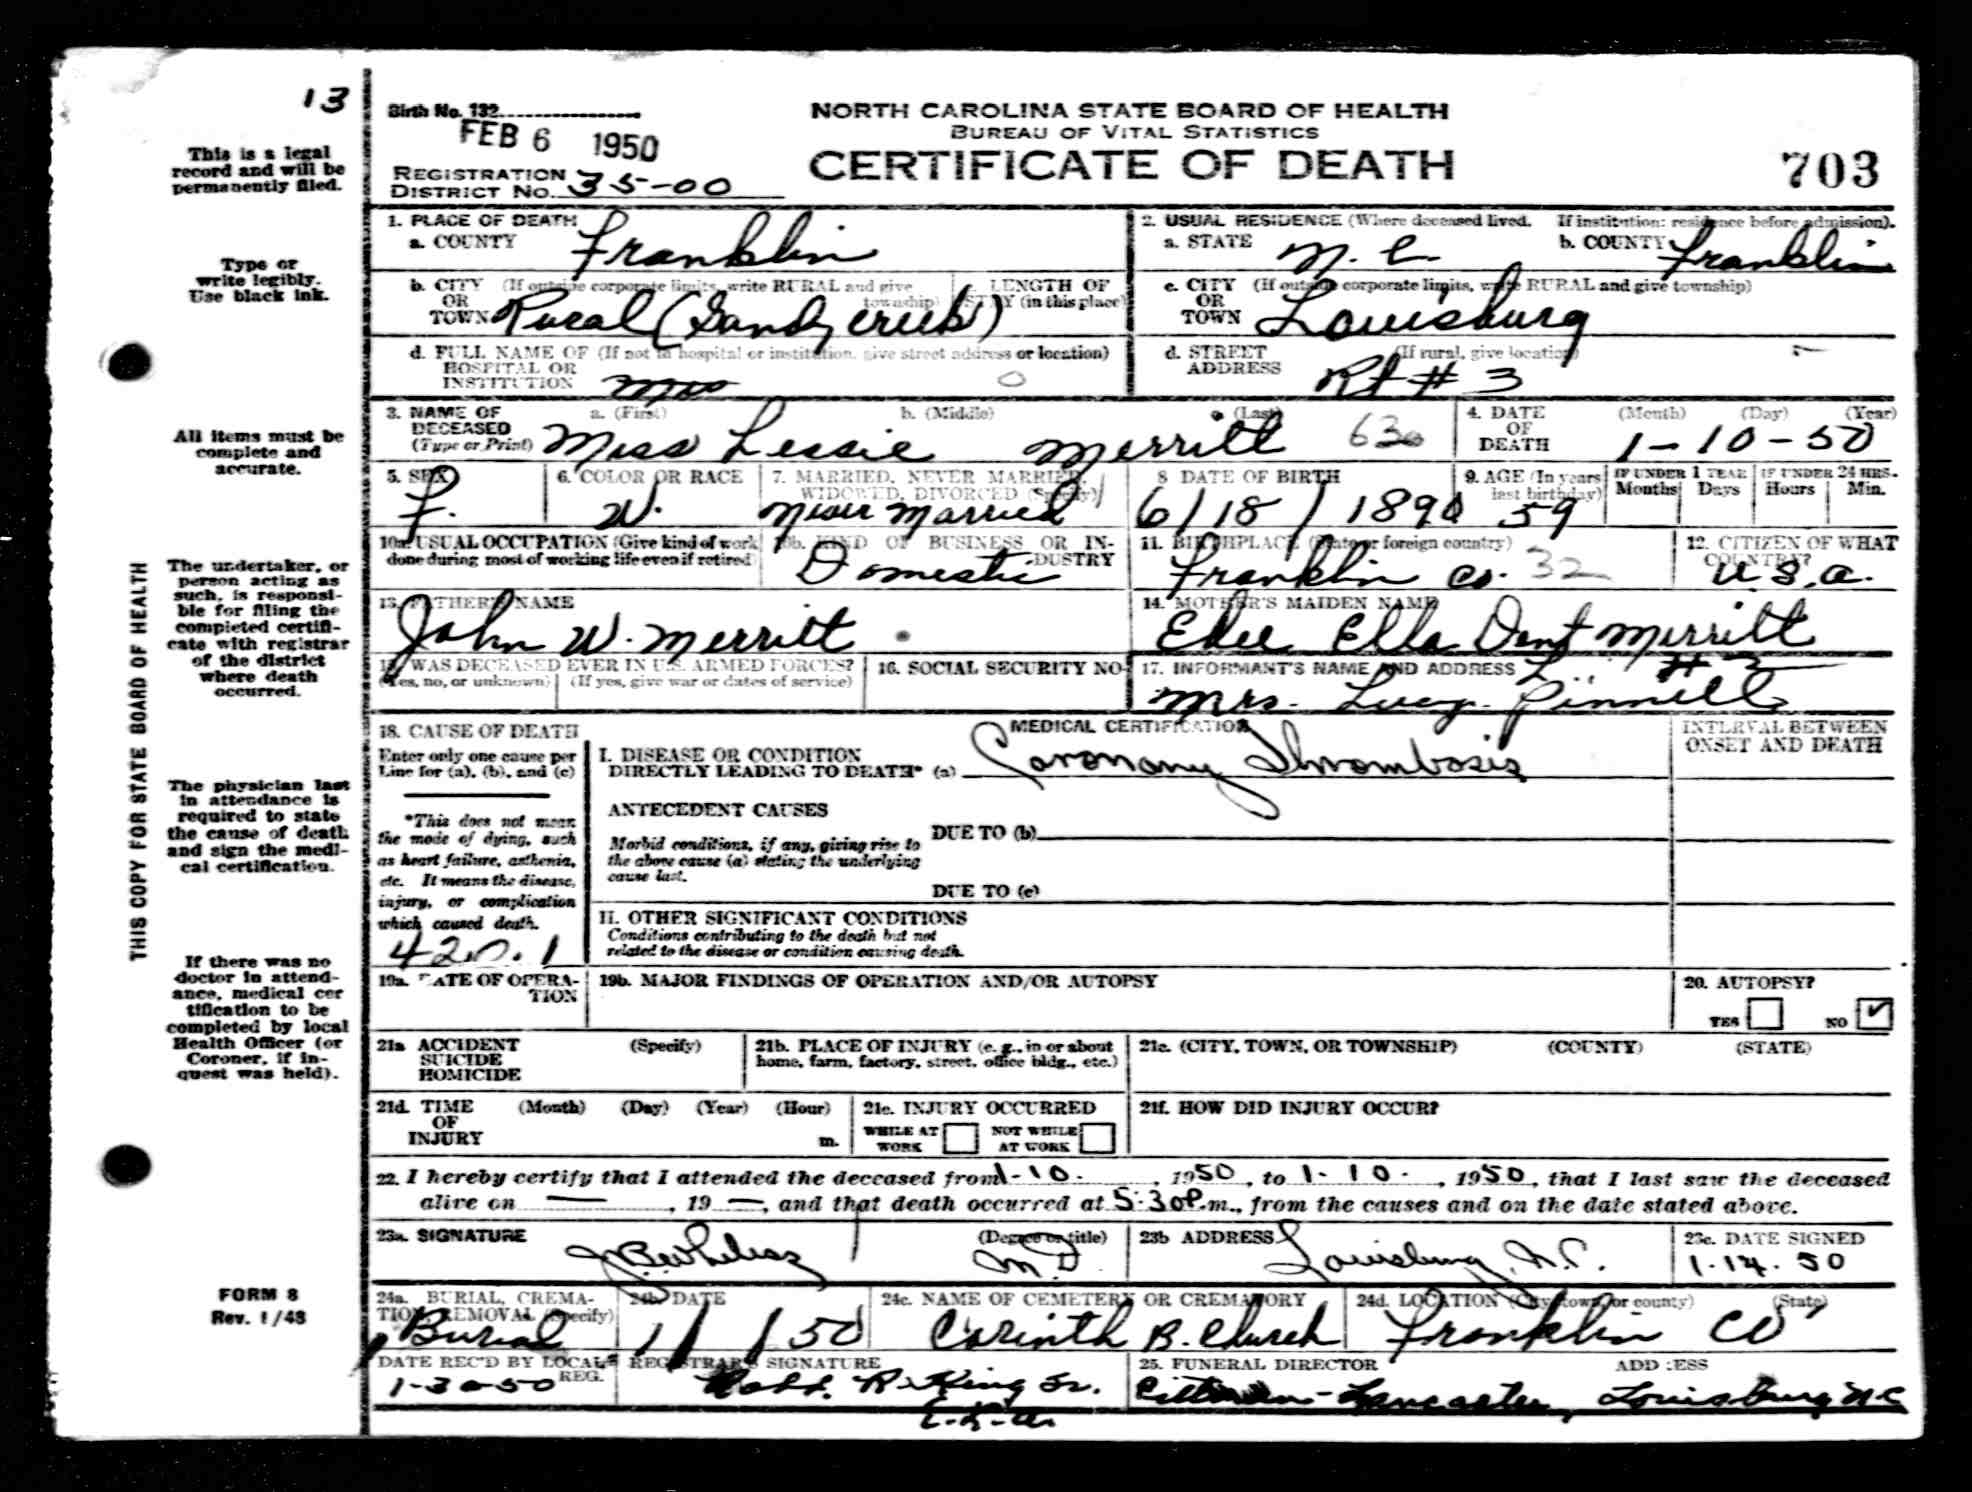 13
Birth No. 132
FEB 6 1950
NORTH CAROLINA STATE BOARD OF HEALTH
BUREAU OF VITAL STATISTICS
CERTIFICATE OF DEATH
703
REGISTRATION DISTRICT No. 35-00
This is a legal
record and will be
permanently filed.
Type or
write legibly.
Use black ink.
All items must be
complete and
accurate.
The undertaker, or
person acting as
such, is responsi-
ble for filing the
completed certifi-
cate with registrar
of the district
where death
occurred.
The physician last
in attendance is
required to state
the cause of death
and sign the medi-
cal certification.
If there was no
doctor in attend-
ance, medical cer
tification to be
completed by local
Health Officer (or
Coroner, if in-
quest was held).
FORM 8
Rev. 1/48
THIS COPY FOR STATE BOARD OF HEALTH
1. PLACE OF DEATH
a. COUNTY Franklin
2. USUAL RESIDENCE (Where deceased lived. If institution: residence before admission).
a. STATE N. C. b. COUNTY Franklin
b. CITY OR TOWN (If outside corporate limits, write RURAL and give township) Rural (Sandy creek)
LENGTH OF STAY (in this place)
c. CITY OR TOWN (If outside corporate limits, write RURAL and give township) Louisburg
d. FULL NAME OF HOSPITAL OR INSTITUTION (If not in hospital or institution, give street address or location)
d. STREET ADDRESS (If rural, give location) Rt # 3
3. NAME OF DECEASED (Type or Print) a. (First) b. (Middle) (Last)
Miss Lessie Merritt
4. DATE OF DEATH (Month) (Day) (Year) 1-10-50
5. SEX F.
6. COLOR OR RACE W.
7. MARRIED, NEVER MARRIED, WIDOWED, DIVORCED (Specify) Never Married
8 DATE OF BIRTH 6/18/1890
9. AGE (In years last birthday) 59
IF UNDER 1 YEAR Months Days
IF UNDER 24 HRS. Hours Min.
10a. USUAL OCCUPATION (Give kind of work done during most of working life even if retired)
10b. KIND OF BUSINESS OR INDUSTRY Domestic
11. BIRTHPLACE (State or foreign country) Franklin Co. 32
12. CITIZEN OF WHAT COUNTRY? U.S.A.
13. FATHER'S NAME
John W. Merritt
14. MOTHER'S MAIDEN NAME
Ella Dent Merritt
15. WAS DECEASED EVER IN U.S. ARMED FORCES?
(Yes, no, or unknown) (If yes, give war or dates of service)
16. SOCIAL SECURITY NO.
17. INFORMANT'S NAME AND ADDRESS
Mrs. Lucy Pinnell
18. CAUSE OF DEATH
Enter only one cause per
Line for (a), (b), and (c)
*This does not mean
the mode of dying, such
as heart failure, asthenia,
etc. It means the disease,
injury, or complication
which caused death.
420.1
MEDICAL CERTIFICATION
I. DISEASE OR CONDITION
DIRECTLY LEADING TO DEATH* (a) Coronary Thrombosis
INTERVAL BETWEEN
ONSET AND DEATH
ANTECEDENT CAUSES
Morbid conditions, if any, giving rise to
the above cause (a) stating the underlying
cause last.
DUE TO (b)
DUE TO (c)
II. OTHER SIGNIFICANT CONDITIONS
Conditions contributing to the death but not
related to the disease or condition causing death.
19a. DATE OF OPERA-
TION
19b. MAJOR FINDINGS OF OPERATION AND/OR AUTOPSY
20. AUTOPSY?
YES NO ✓
21a ACCIDENT SUICIDE HOMICIDE (Specify)
21b. PLACE OF INJURY (e. g., in or about
home, farm, factory, street, office bldg., etc.)
21c. (CITY, TOWN, OR TOWNSHIP) (COUNTY) (STATE)
21d. TIME OF INJURY (Month) (Day) (Year) (Hour) m.
21e. INJURY OCCURRED
WHILE AT WORK NOT WHILE AT WORK
21f. HOW DID INJURY OCCUR?
22. I hereby certify that I attended the deceased from 1-10, 1950, to 1-10, 1950, that I last saw the deceased
alive on —, 19 —, and that death occurred at 5:30 P.m., from the causes and on the date stated above.
23a. SIGNATURE (Degree or title) M.D.
23b ADDRESS Louisburg, N.C.
23c. DATE SIGNED 1.14.50
24a. BURIAL, CREMATION, REMOVAL (Specify) Burial
24b. DATE
24c. NAME OF CEMETERY OR CREMATORY Corinth B. Church
24d. LOCATION (City, town, or county) (State) Franklin Co
DATE REC'D BY LOCAL REG. 1-30-50
REGISTRAR'S SIGNATURE R. King Sr.
25. FUNERAL DIRECTOR ADDRESS
Lancaster, Louisburg N.C